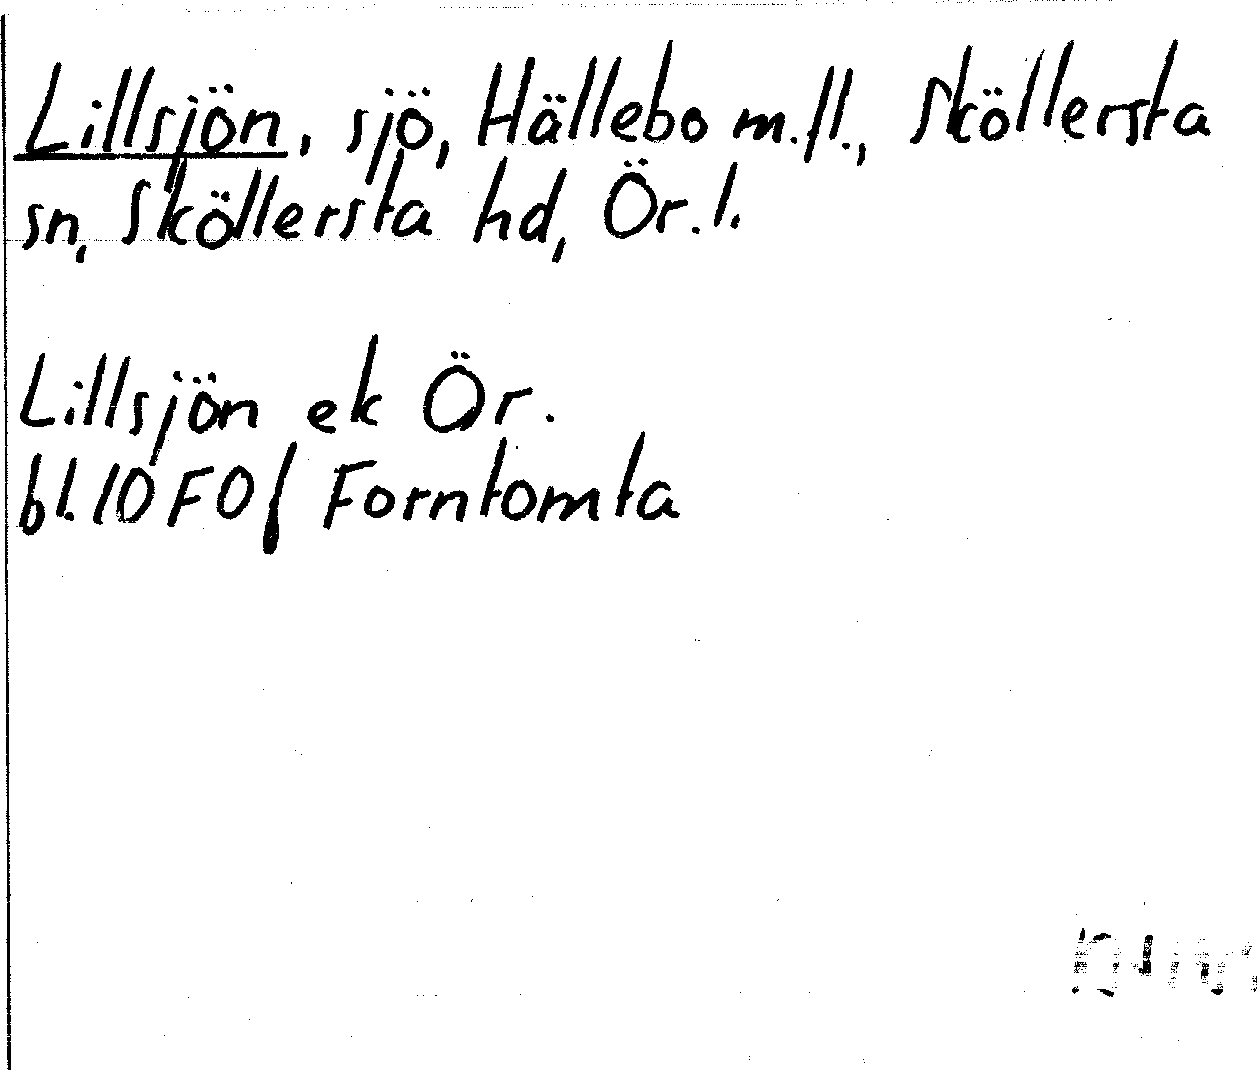 Lillsjön, sjö, Hällebo m.fl., Sköllersta
sn, Sköllersta hd, Ör.l.
Lillsjön ek Ör.
bl.10F0f Forntomta